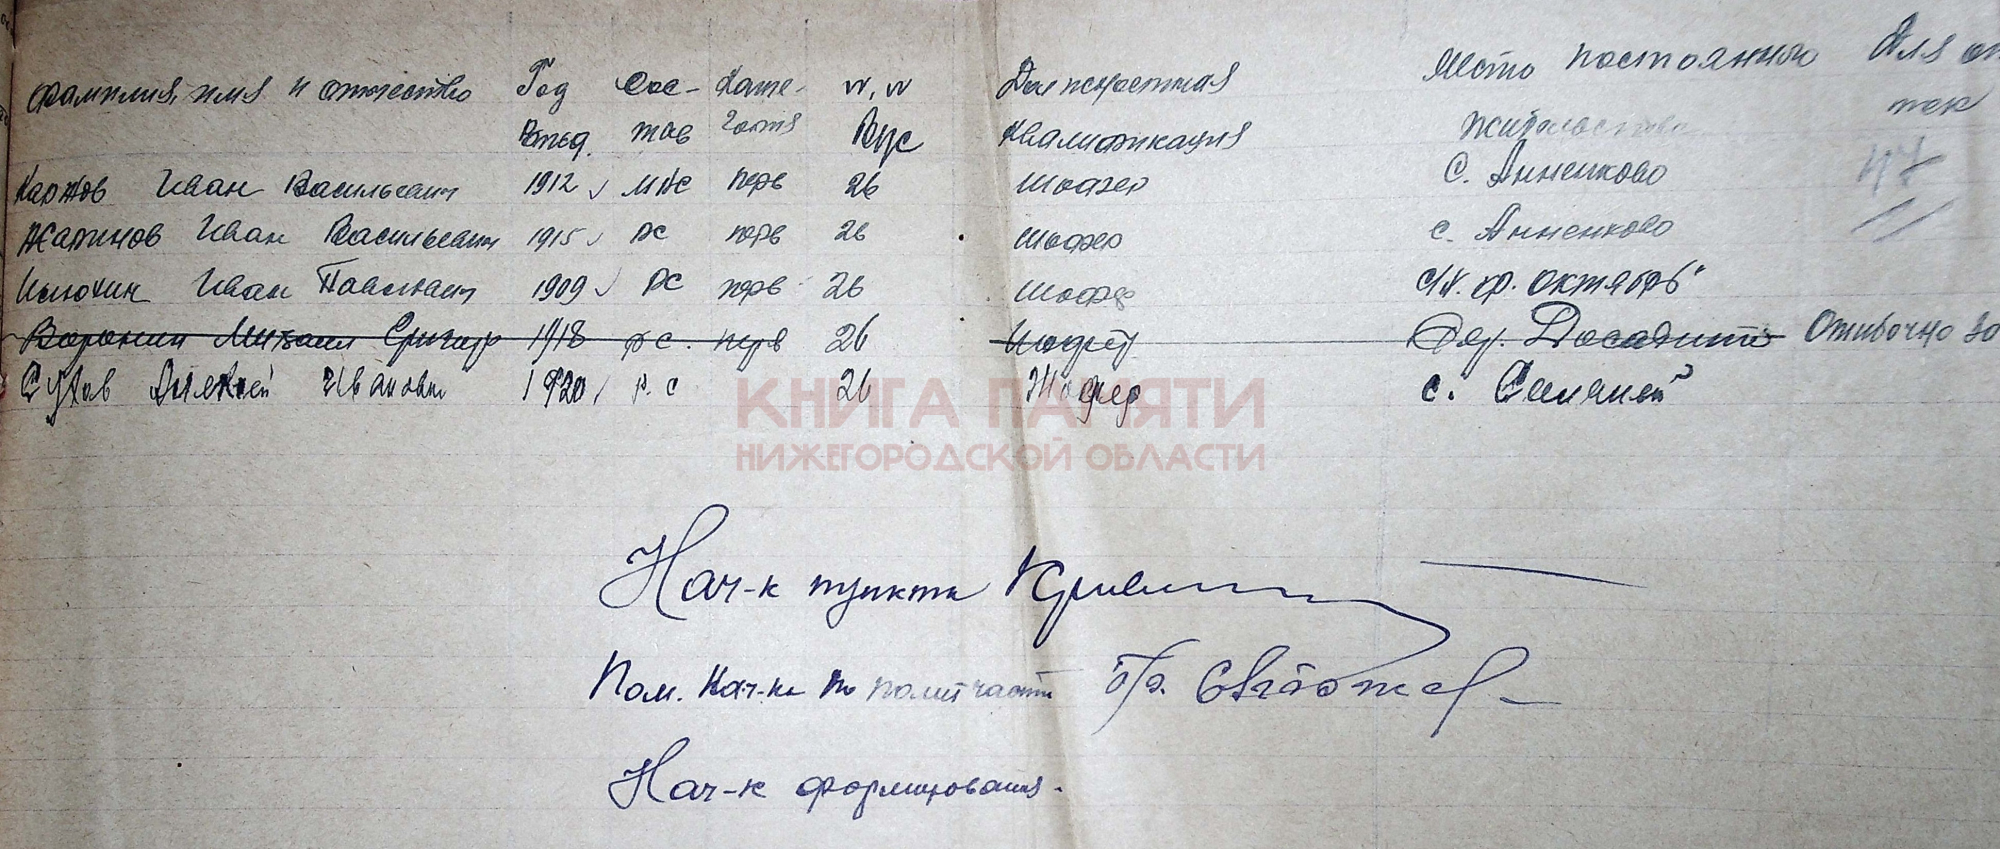 Фамилия, имя и отчество Год Сос- Кате- №, № Должностная Место постоянного Для от
рожд. тав гория ВУС Квалификация жительства ток
Иван Васильевич 1912 МНС перв 26 шофер С. Анненково 47
Жаринов Иван Васильевич 1915 РС перв 26 шофер с. Анненково
Илюхин Иван Павлович 1909 РС перв 26 шофер с/х. кр. октябрь"
Воронин Михаил Григор 1918 рс. перв 26 Шофер Дер. Ошибочно за
Сухов Алексей Иванович 1920 р. с 26 Шофер с.
КНИГА ПАМЯТИ
НИЖЕГОРОДСКОЙ ОБЛАСТИ
Нач-к пункта
Пом. Нач-ка по политчасти
Нач-к формирования.